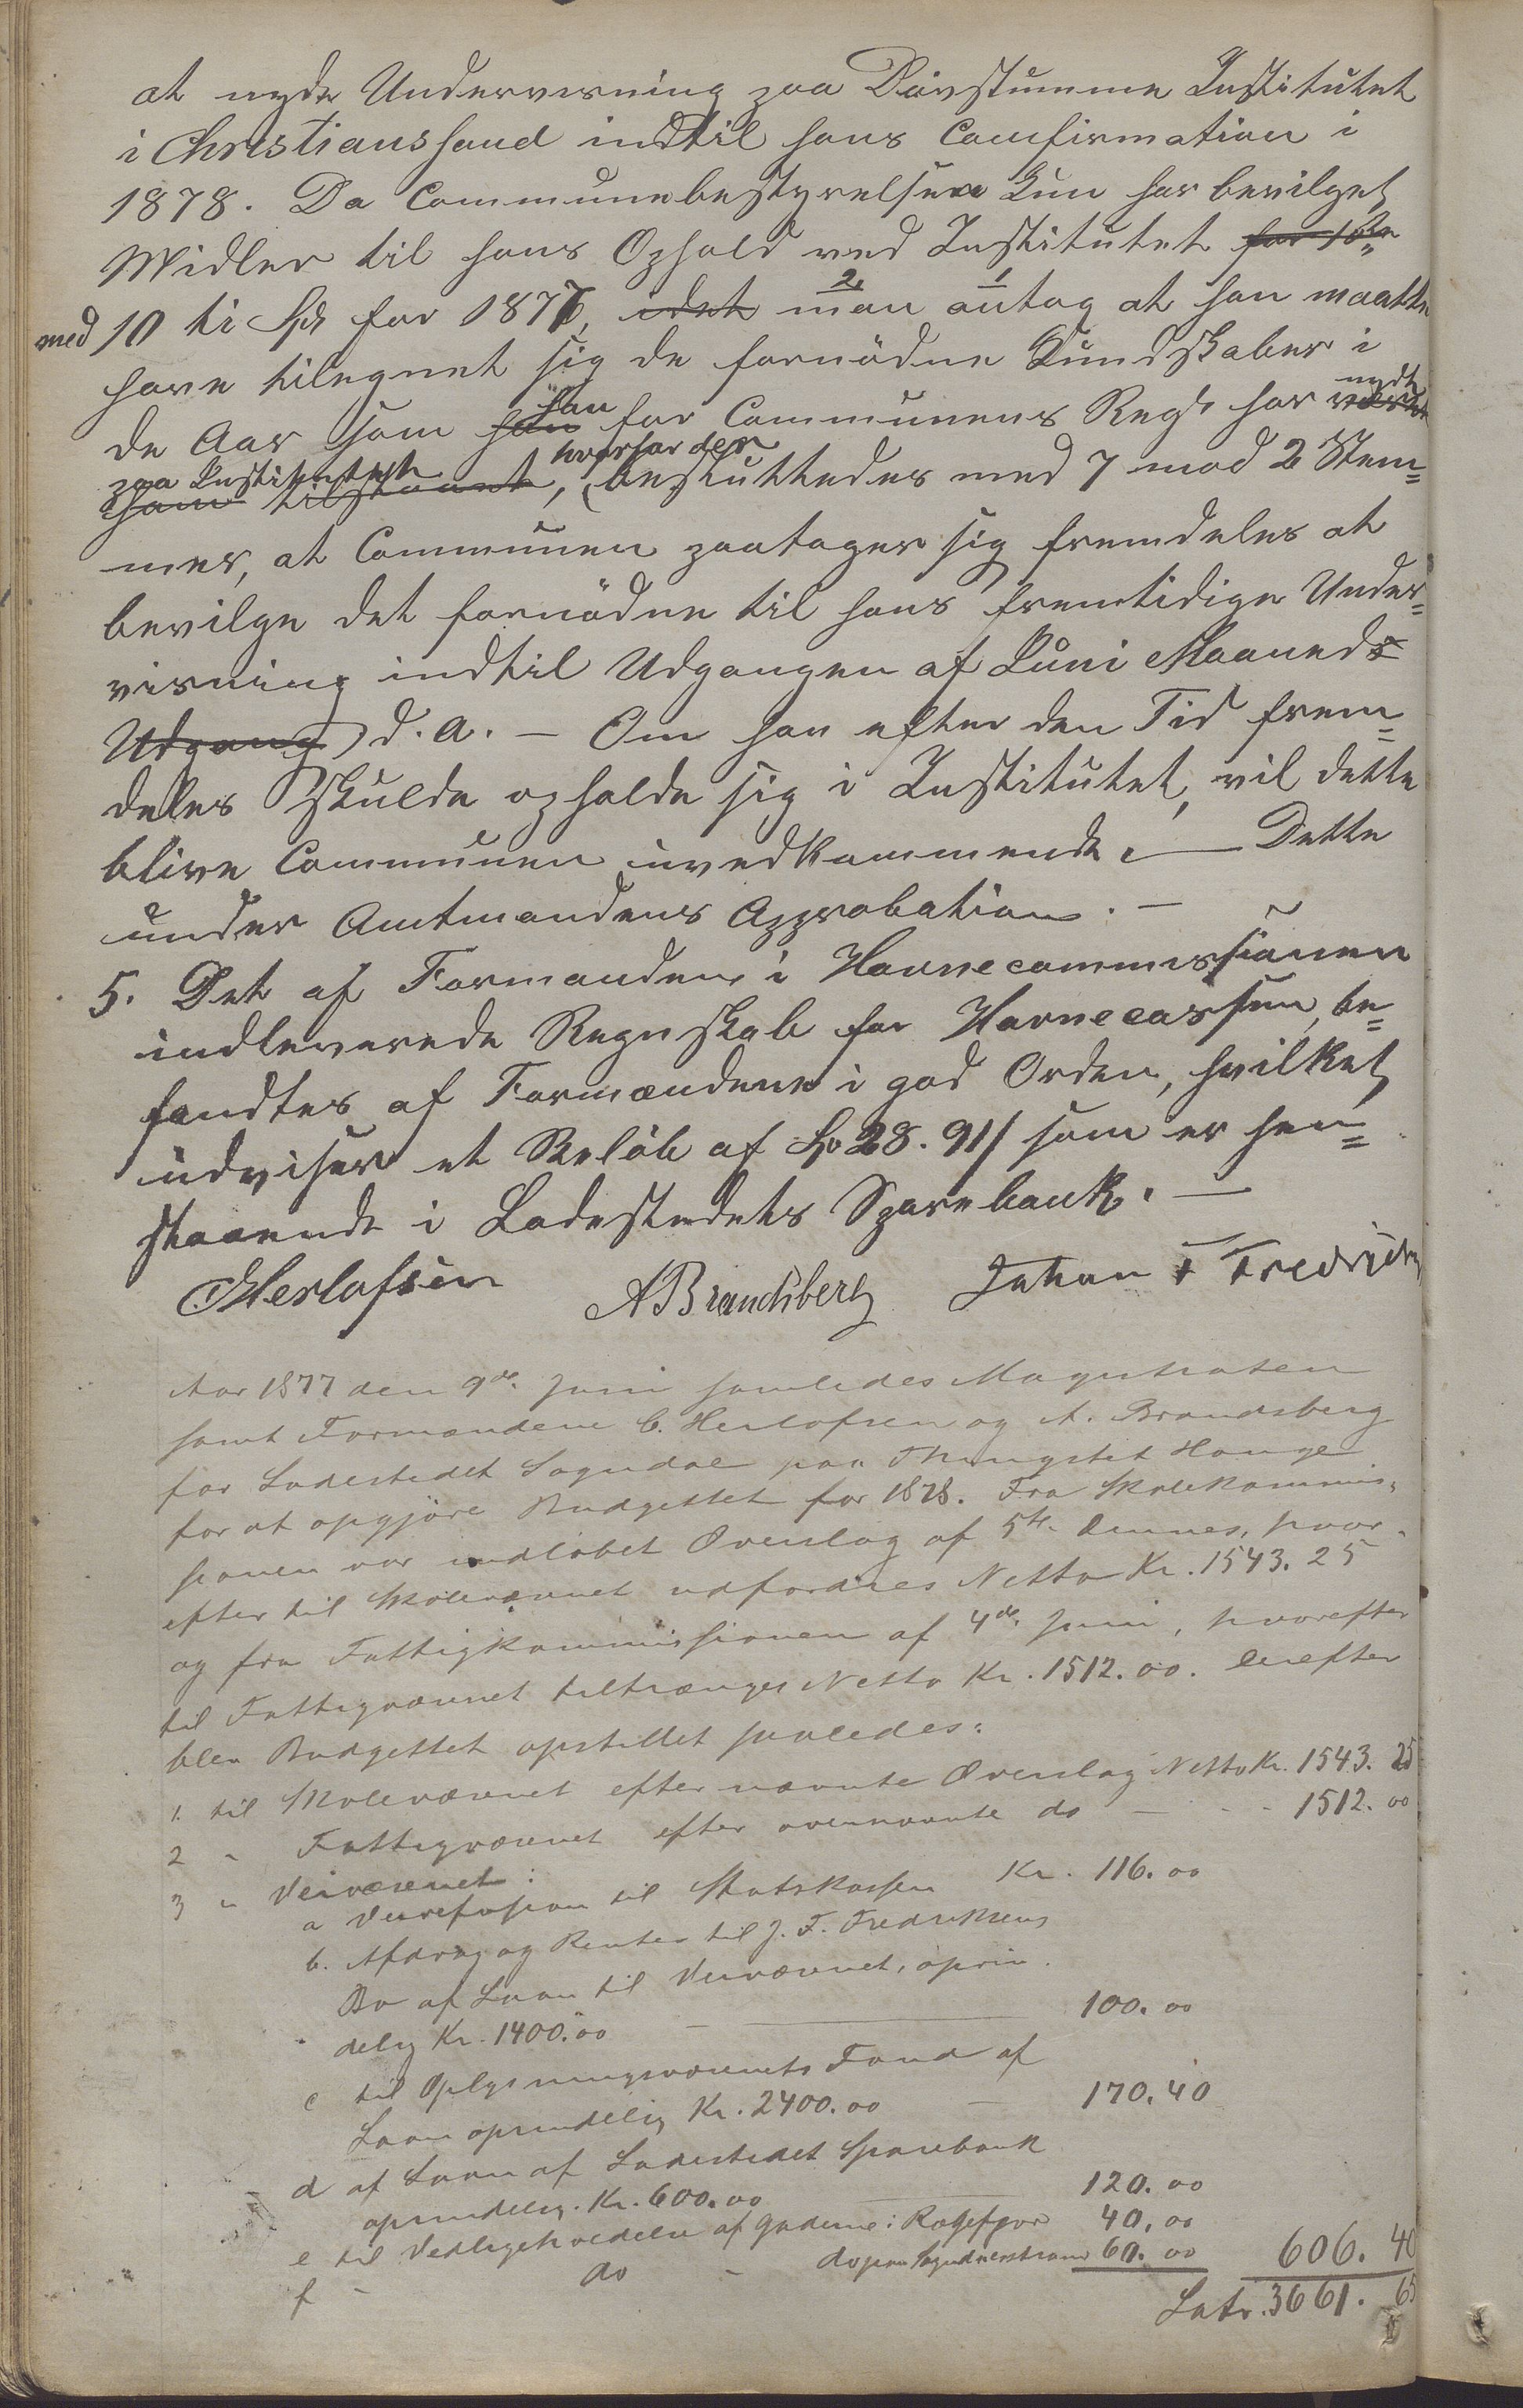 at nyde Undervisning paa Døvstumme Institutet
i Christianssand indtil hans Confirmation i
1878. Da Communebestyrelsen kun har bevilget
Midler til hans Ophold ved Institutet
med 10 ti Spd for 1877, idet man antog at han maatte
have tilegnet sig de fornødne Kundskaber i
de Aar som han for Communens Regn har nydt
paa Institutet, hvorfor der besluttedes med 7 mod 2 Stem=
mer, at Communen paatager sig fremdeles at
bevilge det fornødne til hans fremtidige Under=
visning indtil Udgangen af Juni Maaned
Udgang d. A. – Om han efter den Tid frem=
deles skulde opholde sig i Institutet, vil dette
blive Communen uvedkommende. — Dette
under Amtmandens Approbation. –
5. Det af Formanden i Havnecommissionen
indleverede Regnskab for Havnecassen, be=
fandtes af Formændene i god Orden, hvilket
udviser et Beløb af Sp 28. 91/ som er hen=
staaende i Ladestedets Sparebank. —
C Herlofsen A Brandsberg Johan F Fredriksen
Aar 1877 den 9de Juni samledes Magistraten
samt Formændene C. Herlofsen og A. Brandsberg
for Ladestedet Sogndal paa Thingstet Hauge
for at opgjøre Budgettet for 1878. Fra Skolekommis=
sionen var indløbet Overslag af 5te dennes, hvor=
efter til Skolevæsenet udfordres Netto Kr. 1543. 25
og fra Fattigkommissionen af 4de Juni, hvorefter
til Fattigvæsenet tiltrænges Netto Kr. 1512. 00. Derefter
blev Budgettet opstillet saaledes:
1. til Skolevæsenet efter nævnte Overslag Netto Kr. 1543. 25
2 " Fattigvæsenet efter ovennævnte do – - - 1512. 00
3 " Veivæsenet:
a Veirefusion til Statskassen Kr. 116. 00
b. Afdrag og Renter til J. F. Fredriksens
Bo af Laan til Veivæsenet, oprin=
delig Kr. 1400. 00 — 100. 00
c til Oplysningsvæsenets Fond af
Laan oprindelig Kr. 2400. 00 – 170. 40
d af Laan af Ladestedet Sparebank
oprindelig Kr. 600. 00 — 120. 00
e til Vedligeholdelse af Gaderne i 40. 00
f - do - do paa Sogndalsstrand 60. 00 606. 40
Latr. 3661. 65